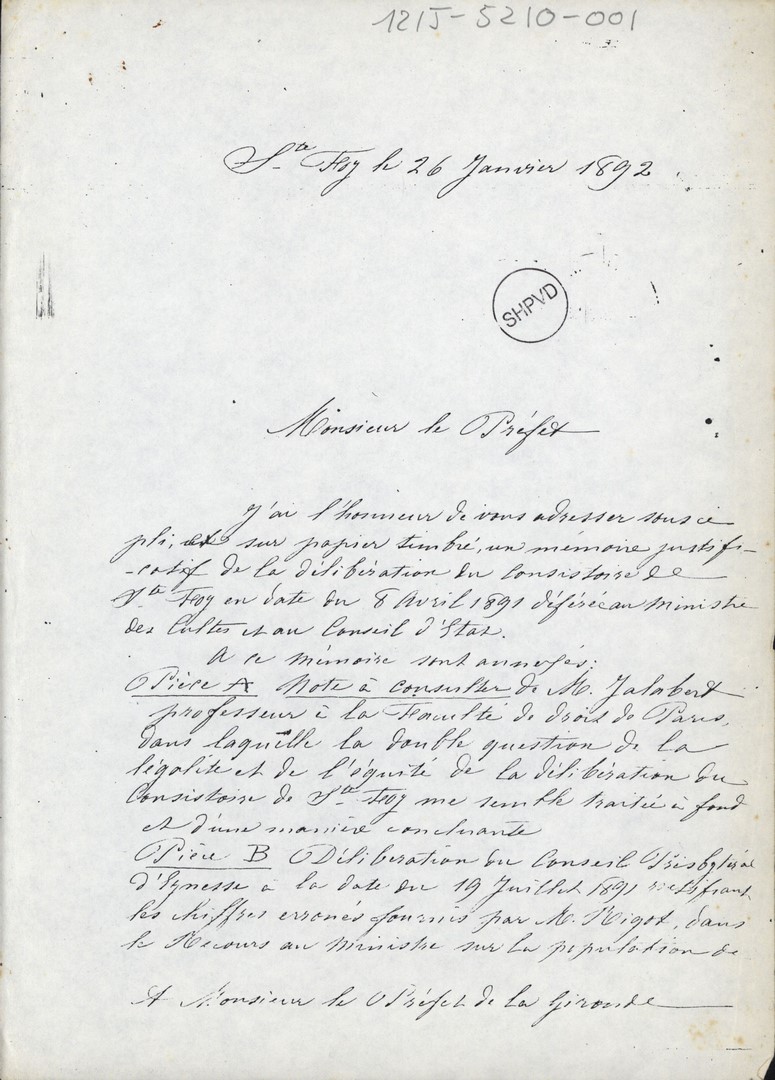 121J-5210-001
Ste Foy le 26 Janvier 1892
SHPVD
Monsieur le Préfet
J'ai l'honneur de vous adresser sous ce
pli, et sur papier timbré, un mémoire justifi-
-catif de la délibération du Consistoire de
Ste Foy en date du 8 Avril 1891 déférée au ministre
des Cultes et au Conseil d'Etat.
A ce mémoire sont annexés:
Pièce A Note à consulter de M. Jalabert
professeur à la Faculté de droit de Paris,
dans laquelle la double question de la
légalité et de l'équité de la délibération du
Consistoire de Ste Foy me semble traitée à fond
et d'une manière concluante
Pièce B Délibération du Conseil Presbytéral
d'Eynesse à la date du 19 Juillet 1891 rectifiant
les chiffres erronés fournis par M. Rigot, dans
le Recours au ministre sur la population de
A Monsieur le Préfet de la Gironde